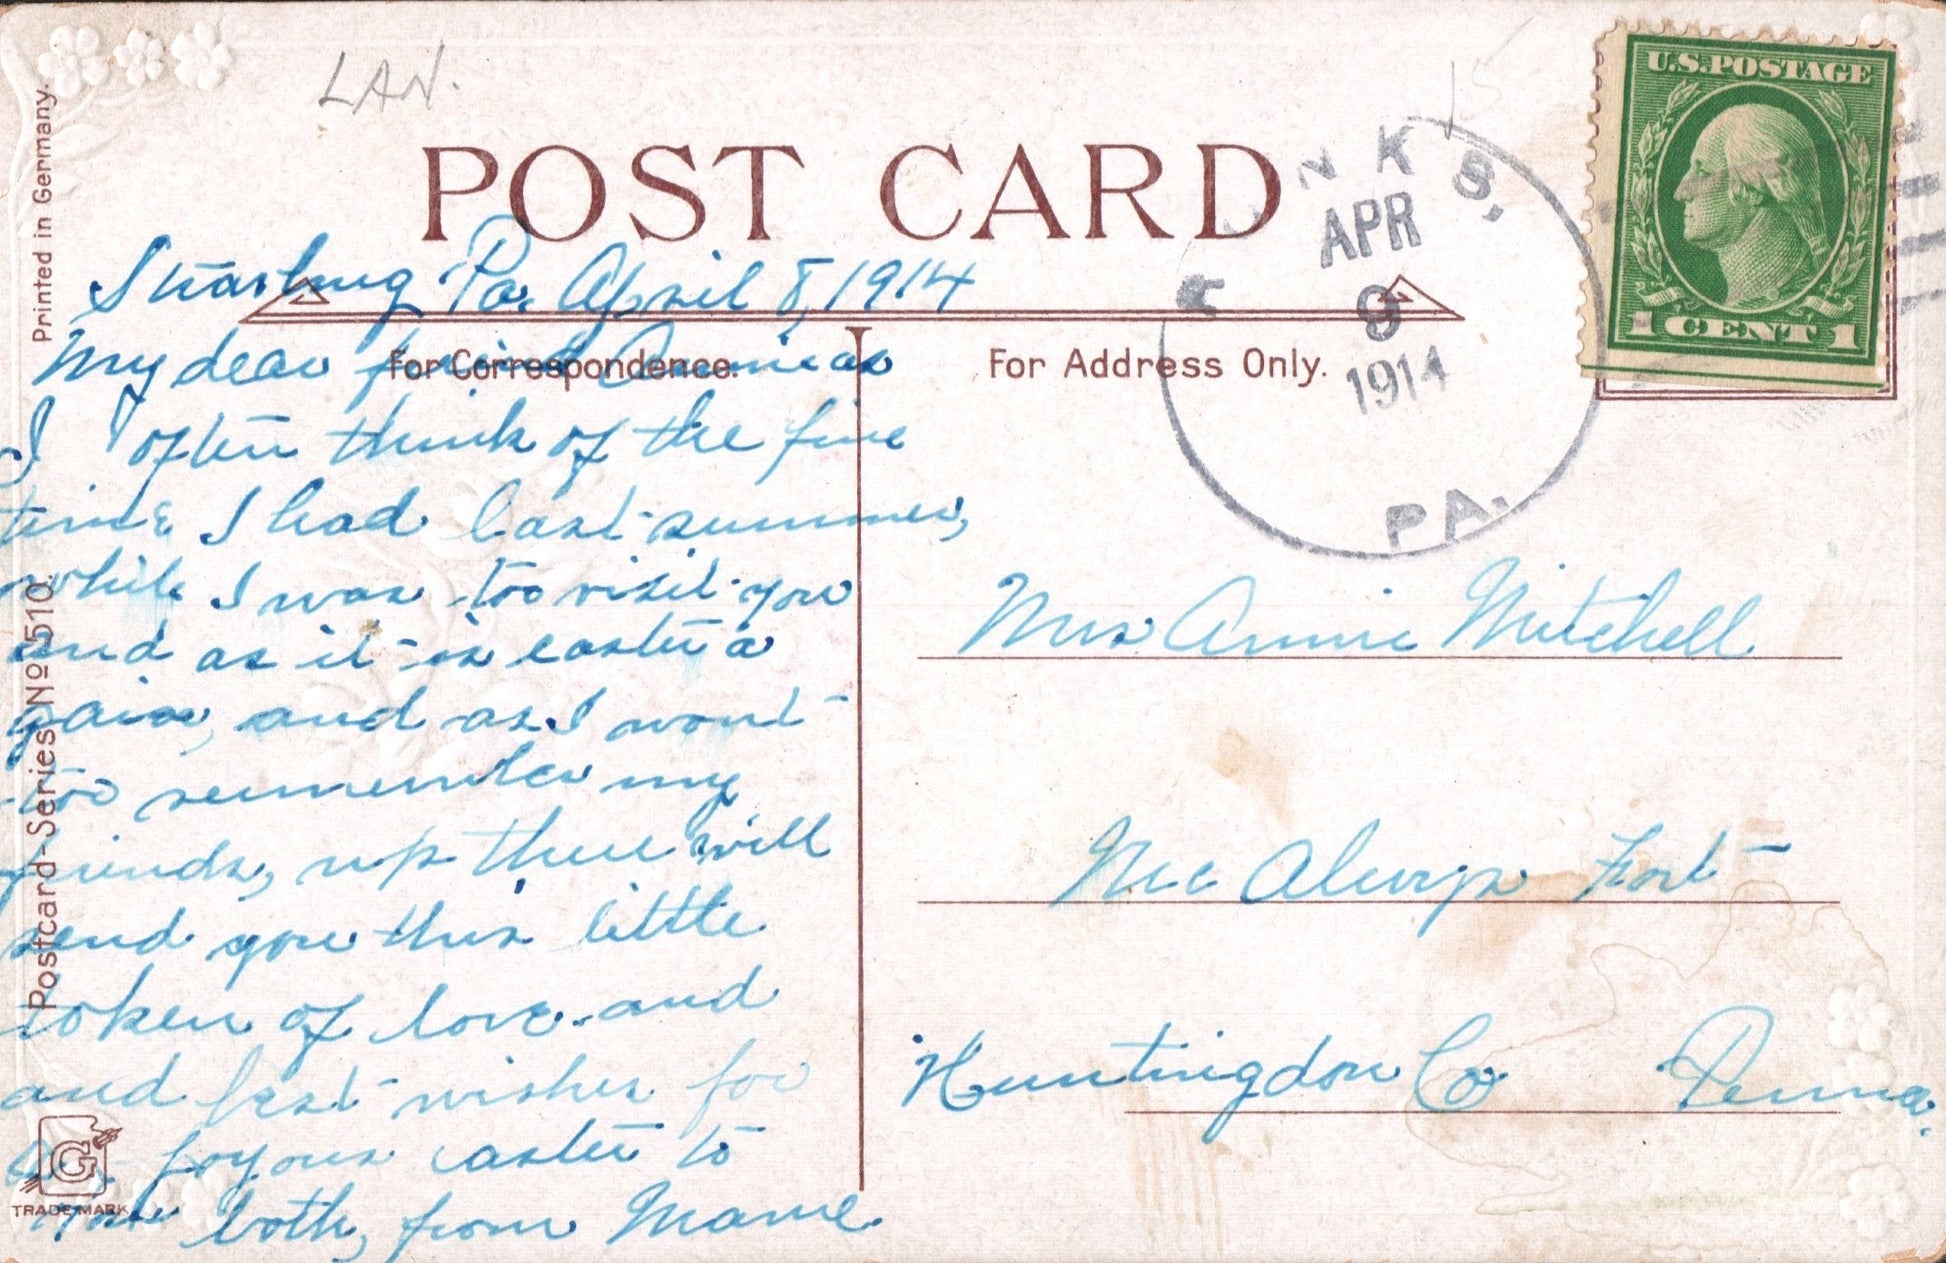 LAN.
15
Printed in Germany.
POST CARD
U.S.POSTAGE
1 CENT 1
NKS,
APR
9
1914
PA.
Pa. April 8, 1914
For Correspondence.
For Address Only.
My dear friend Annie as
I often think of the fine
time I had last summer,
while I was too visit you
and as it is easter a
gain, and as I wont
too remember my
friends, up there will
send you this little
token of love and
and best wishes for
joyous easter to
you both, from Mame
Mrs Annie Mitchell
Mc Alevys Fort
Huntingdon Co Penna.
Postcard-Series No 510.
G
TRADE MARK